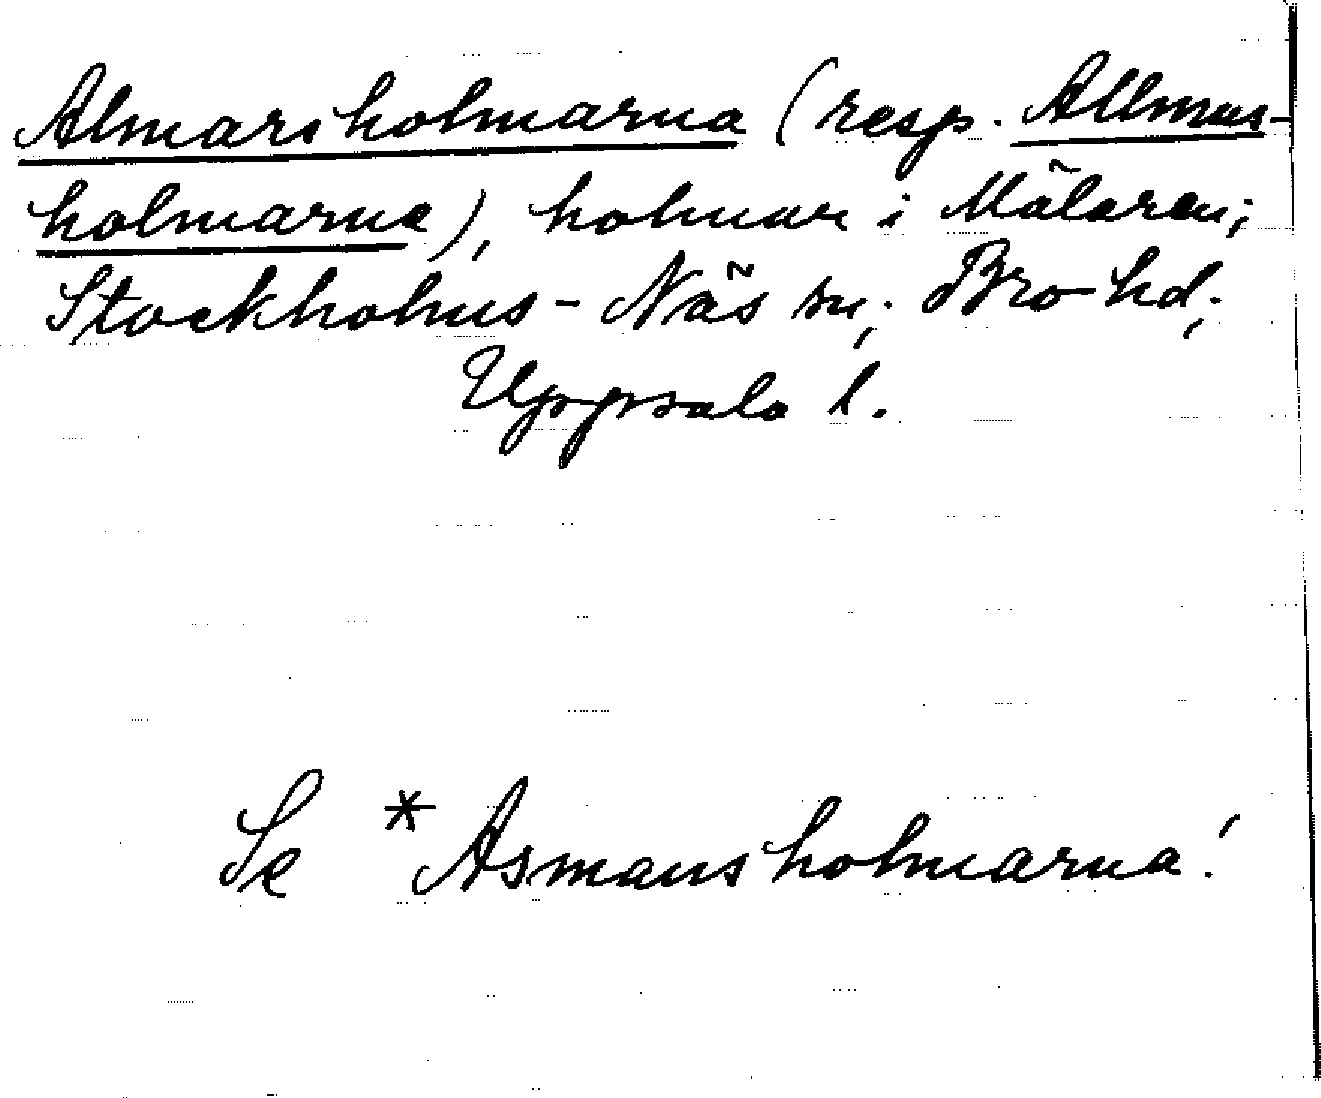 Almarsholmarna (resp. Allmus-
holmarna), holmar i Mälaren;
Stockholms-Näs sn; Bro hd;
Uppsala l.
Se *Asmansholmarna!